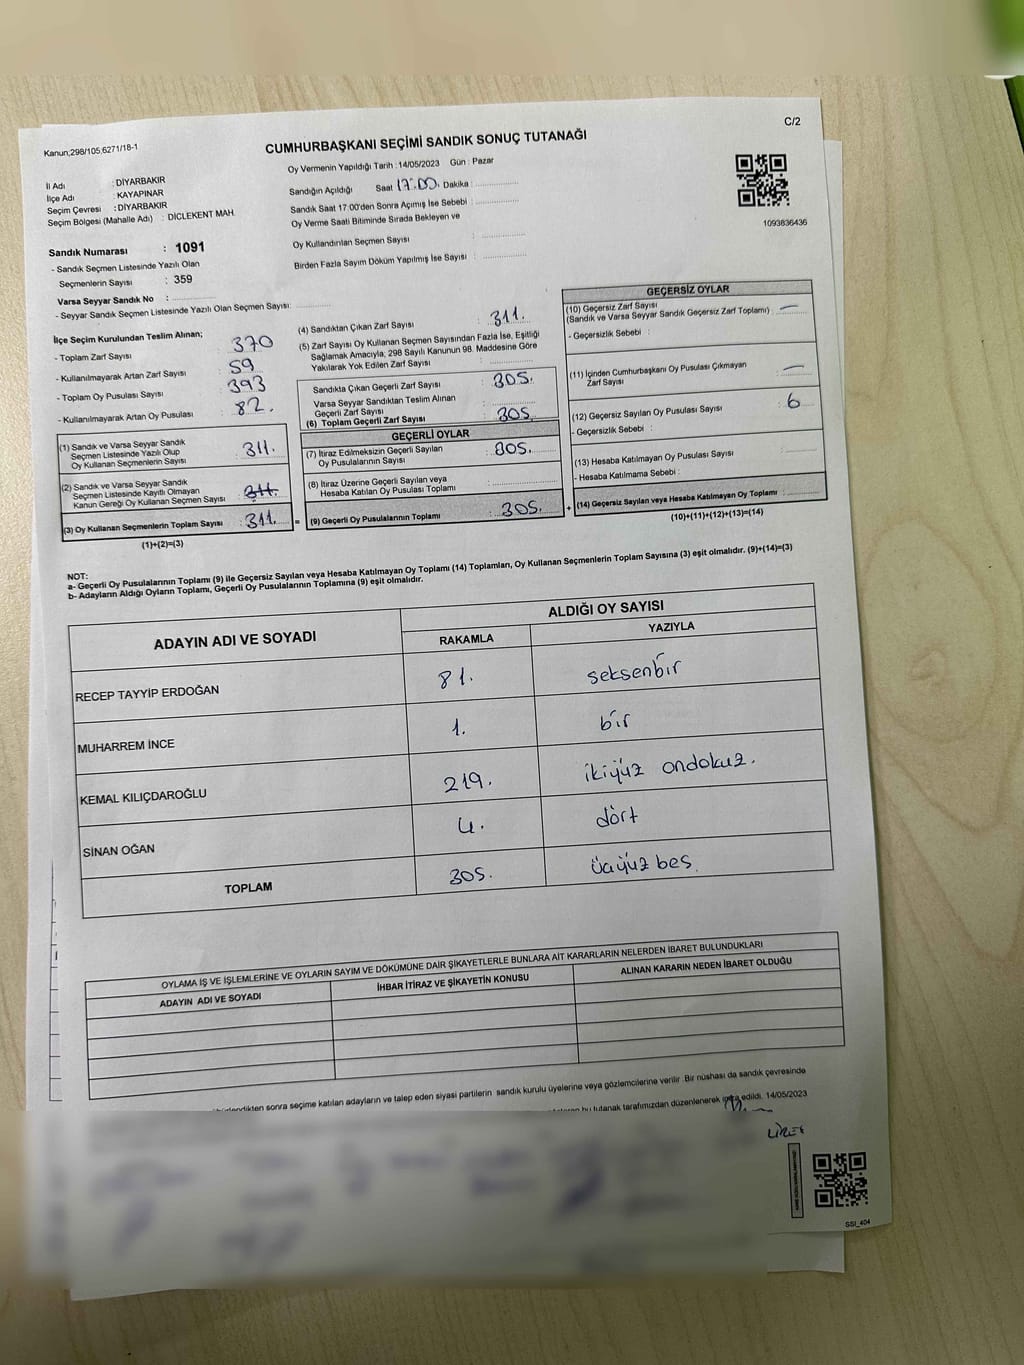 Kanun;298/105;6271/18-1
CUMHURBAŞKANI SEÇİMİ SANDIK SONUÇ TUTANAĞI
C/2
Oy Vermenin Yapıldığı Tarih : 14/05/2023 Gün : Pazar
İl Adı : DİYARBAKIR
İlçe Adı : KAYAPINAR
Seçim Çevresi : DİYARBAKIR
Seçim Bölgesi (Mahalle Adı) : DİCLEKENT MAH.
Sandığın Açıldığı Saat 17:00. Dakika :
Sandık Saat 17:00'den Sonra Açımış İse Sebebi :
Oy Verme Saati Bitiminde Sırada Bekleyen ve
Oy Kullandırılan Seçmen Sayısı :
Birden Fazla Sayım Döküm Yapılmış İse Sayısı :
1093836436
Sandık Numarası : 1091
- Sandık Seçmen Listesinde Yazılı Olan
Seçmenlerin Sayısı : 359
Varsa Seyyar Sandık No :
- Seyyar Sandık Seçmen Listesinde Yazılı Olan Seçmen Sayısı:
İlçe Seçim Kurulundan Teslim Alınan;
- Toplam Zarf Sayısı : 370
- Kullanılmayarak Artan Zarf Sayısı : 59
- Toplam Oy Pusulası Sayısı : 393
- Kullanılmayarak Artan Oy Pusulası : 82.
(1) Sandık ve Varsa Seyyar Sandık
Seçmen Listesinde Yazılı Olup
Oy Kullanan Seçmenlerin Sayısı : 311.
(2) Sandık ve Varsa Seyyar Sandık
Seçmen Listesinde Kayıtlı Olmayan
Kanun Gereği Oy Kullanan Seçmen Sayısı : 311.
(3) Oy Kullanan Seçmenlerin Toplam Sayısı : 311.
(1)+(2)=(3)
(4) Sandıktan Çıkan Zarf Sayısı : 311.
(5) Zarf Sayısı Oy Kullanan Seçmen Sayısından Fazla İse, Eşitliği
Sağlamak Amacıyla, 298 Sayılı Kanunun 98. Maddesine Göre
Yakılarak Yok Edilen Zarf Sayısı :
Sandıkta Çıkan Geçerli Zarf Sayısı : 305.
Varsa Seyyar Sandıktan Teslim Alınan
Geçerli Zarf Sayısı :
(6) Toplam Geçerli Zarf Sayısı : 305.
GEÇERLİ OYLAR
(7) İtiraz Edilmeksizin Geçerli Sayılan
Oy Pusulalarının Sayısı : 305.
(8) İtiraz Üzerine Geçerli Sayılan veya
Hesaba Katılan Oy Pusulası Toplamı :
= (9) Geçerli Oy Pusulalarının Toplamı : 305. +
GEÇERSİZ OYLAR
(10) Geçersiz Zarf Sayısı
(Sandık ve Varsa Seyyar Sandık Geçersiz Zarf Toplamı) : —
- Geçersizlik Sebebi :
(11) İçinden Cumhurbaşkanı Oy Pusulası Çıkmayan
Zarf Sayısı : —
(12) Geçersiz Sayılan Oy Pusulası Sayısı : 6
- Geçersizlik Sebebi :
(13) Hesaba Katılmayan Oy Pusulası Sayısı :
- Hesaba Katılmama Sebebi :
(14) Geçersiz Sayılan veya Hesaba Katılmayan Oy Toplamı :
(10)+(11)+(12)+(13)=(14)
NOT:
a- Geçerli Oy Pusulalarının Toplamı (9) ile Geçersiz Sayılan veya Hesaba Katılmayan Oy Toplamı (14) Toplamları, Oy Kullanan Seçmenlerin Toplam Sayısına (3) eşit olmalıdır. (9)+(14)=(3)
b- Adayların Aldığı Oyların Toplamı, Geçerli Oy Pusulalarının Toplamına (9) eşit olmalıdır.
ADAYIN ADI VE SOYADI ALDIĞI OY SAYISI
RAKAMLA YAZIYLA
RECEP TAYYİP ERDOĞAN 81. seksenbir
MUHARREM İNCE 1. bir
KEMAL KILIÇDAROĞLU 219. ikiyüz ondokuz.
SİNAN OĞAN 4. dört
TOPLAM 305. üçyüz beş
OYLAMA İŞ VE İŞLEMLERİNE VE OYLARIN SAYIM VE DÖKÜMÜNE DAİR ŞİKAYETLERLE BUNLARA AİT KARARLARIN NELERDEN İBARET BULUNDUKLARI
ADAYIN ADI VE SOYADI İHBAR İTİRAZ VE ŞİKAYETİN KONUSU ALINAN KARARIN NEDEN İBARET OLDUĞU
sonra seçime katılan adayların ve talep eden siyasi partilerin sandık kurulu üyelerine veya gözlemcilerine verilir. Bir nüshası da sandık çevresinde
bu tutanak tarafımızdan düzenlenerek imza edildi. 14/05/2023
SSI_404